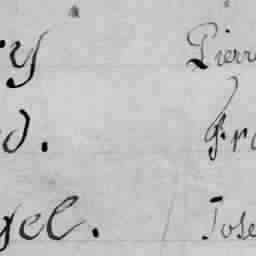 ry Pierre
d. Fra
gel. Jose